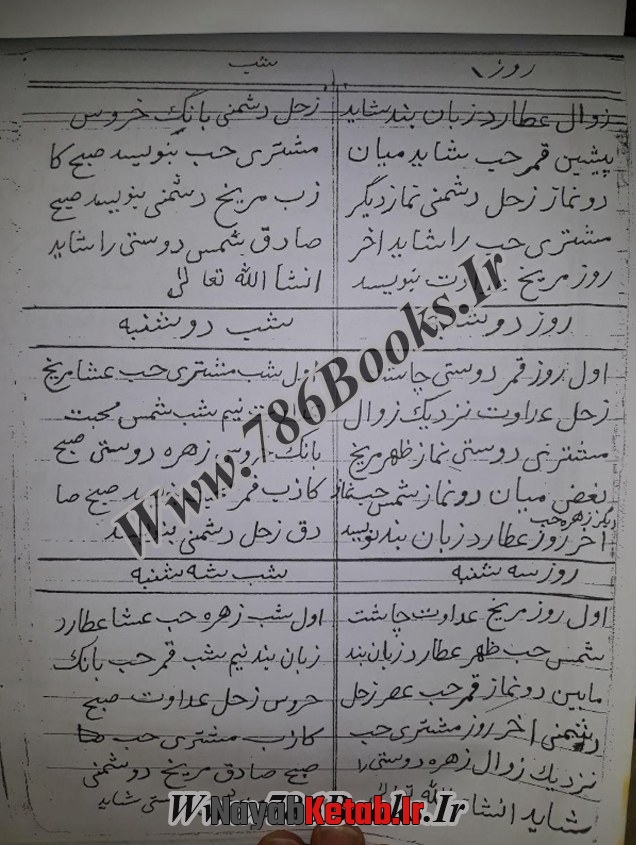 روز
شب
زوال عطارد زبان بند شاید
پیشین قمر حب شاید میان
دو نماز زحل دشمنی نماز دیگر
مشتری حب را شاید اخر
روز مریخ نبویسد
زحل دشمنی بانگ خروس
مشتری حب بنویسد صبح کا
زب مریخ دشمنی بنویسد صبح
صادق شمس دوستی را شاید
انشا الله تعالی
روز دوشنبه
شب دوشنبه
اول روز قمر دوستی چاشت
زحل عداوت نزدیک زوال
مشتری دوستی نماز ظهر مریخ
بغض میان دو نماز شمس حب نماز
دیگر زهره حب
اخر روز عطارد زبان بند نویسد
اول شب مشتری حب عشا مریخ
نیم شب شمس محبت
بانگ خروس زهره دوستی صبح
کاذب قمر صبح صا
دق زحل دشمنی
روز سه شنبه
شب سه شنبه
اول روز مریخ عداوت چاشت
شمس حب ظهر عطارد زبان بند
مابین دو نماز قمر حب عصر زحل
دشمنی اخر روز مشتری حب
نزدیک زوال زهره دوستی را
شاید انشا الله
اول شب زهره حب عشا عطارد
زبان بند نیم شب قمر حب بانگ
خروس زحل عداوت صبح
کازب مشتری حب
صبح صادق مریخ دوشمنی
شاید
Www.786Books.Ir
NayabKetab.Ir